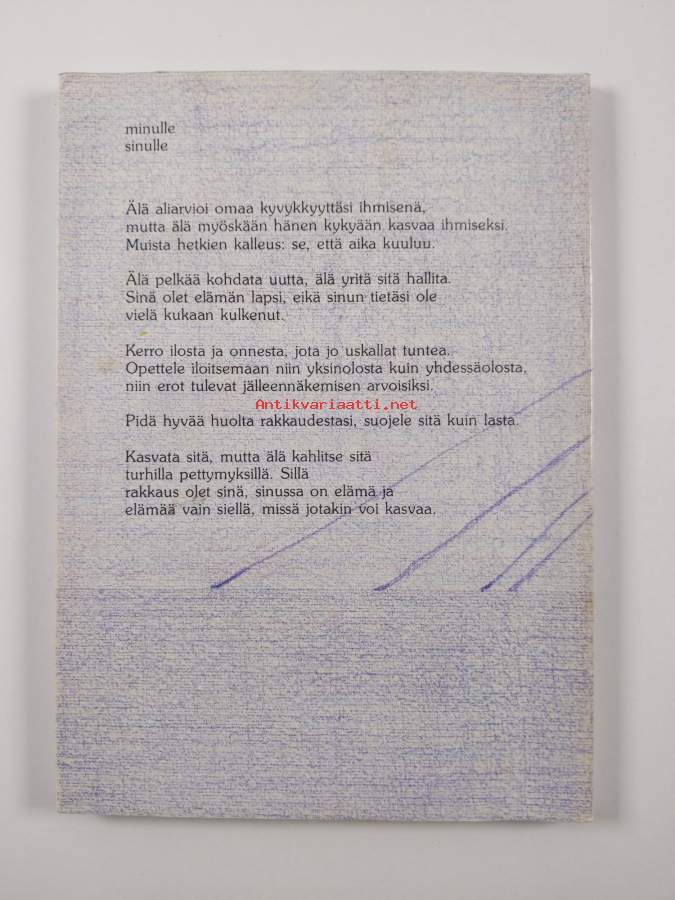 minulle
sinulle
Älä aliarvioi omaa kyvykkyyttäsi ihmisenä,
mutta älä myöskään hänen kykyään kasvaa ihmiseksi.
Muista hetkien kalleus: se, että aika kuuluu.
Älä pelkää kohdata uutta, älä yritä sitä hallita.
Sinä olet elämän lapsi, eikä sinun tietäsi ole
vielä kukaan kulkenut.
Kerro ilosta ja onnesta, jota jo uskallat tuntea.
Opettele iloitsemaan niin yksinolosta kuin yhdessäolosta,
niin erot tulevat jälleennäkemisen arvoisiksi.
Antikvariaatti.net
Pidä hyvää huolta rakkaudestasi, suojele sitä kuin lasta.
Kasvata sitä, mutta älä kahlitse sitä
turhilla pettymyksillä. Sillä
rakkaus olet sinä, sinussa on elämä ja
elämää vain siellä, missä jotakin voi kasvaa.